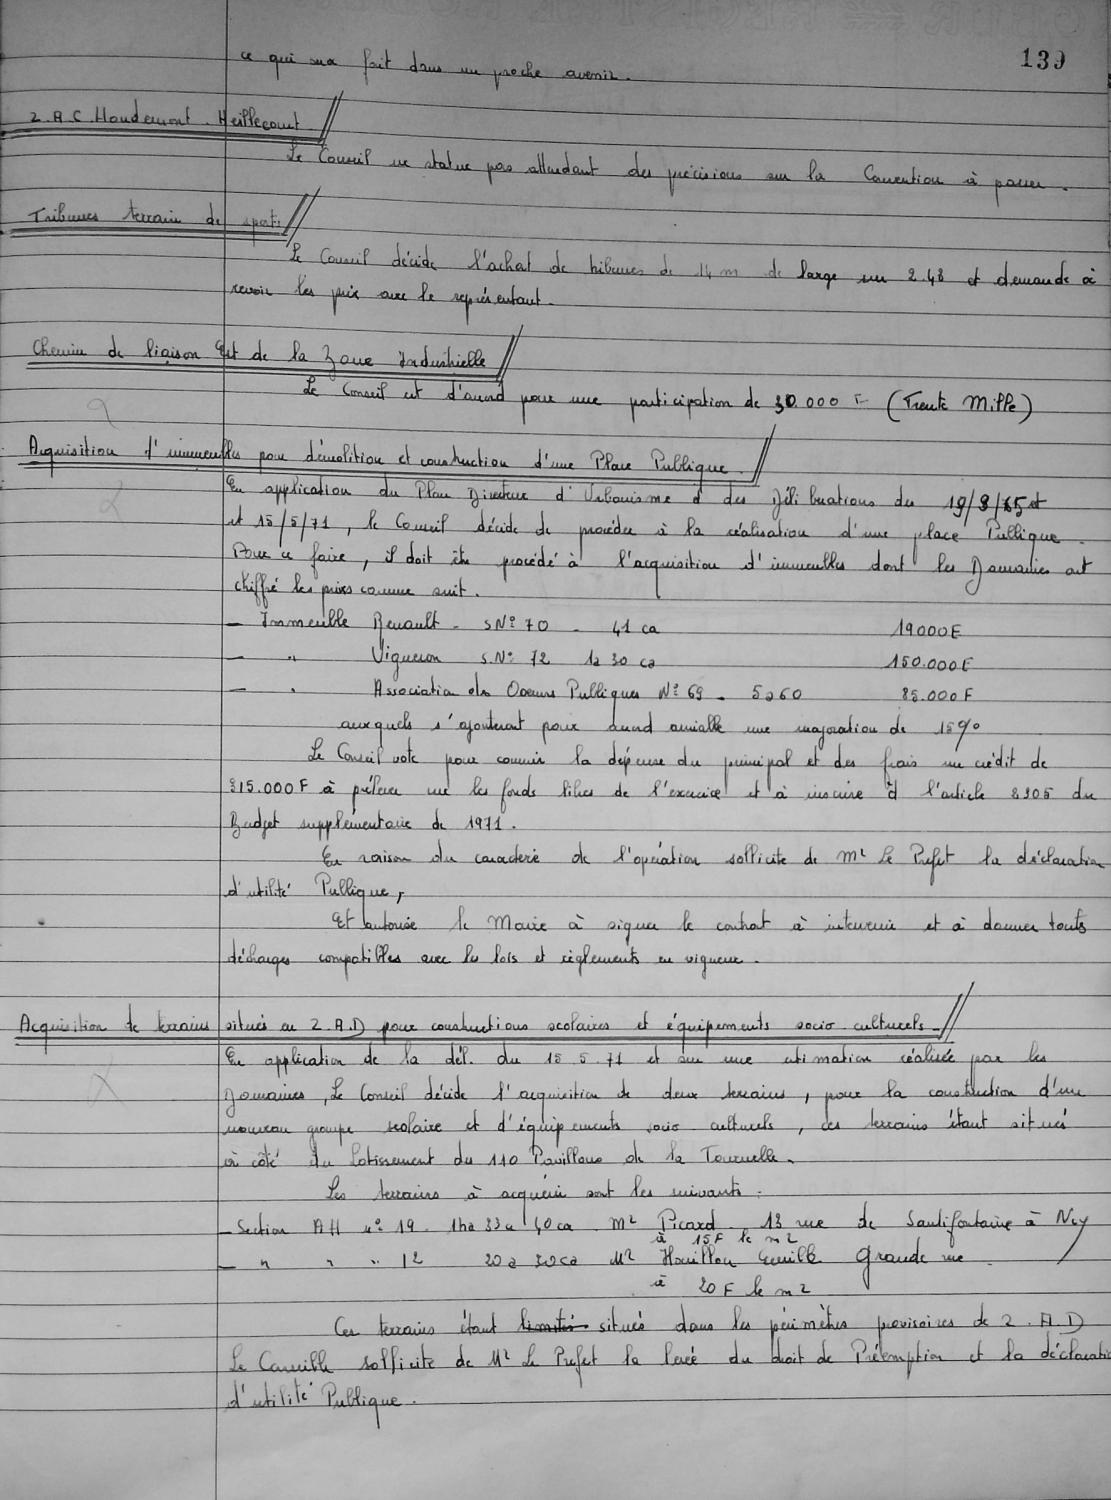 139
ce qui sera fait dans un proche avenir.
Z.A.C. Houdemont - Heillecourt
Le Conseil ne statue pas attendant des précisions sur la Convention à passer.
Tribunes terrain de sports
Le Conseil décide l'achat de tribunes de 14 m de large sur 2.48 et demande à
revoir les prix avec le représentant.
Chemin de liaison Est de la Zone Industrielle
Le Conseil est d'accord pour une participation de 30.000 F (Trente Mille)
Acquisition d'immeubles pour démolition et construction d'une Place Publique.
En application du Plan Directeur d'Urbanisme et des Délibérations du
et 15/5/71, le Conseil décide de procéder à la réalisation d'une place Publique.
Pour ce faire, il doit être procédé à l'acquisition d'immeubles dont les Domaines ont
chiffré les prix comme suit.
- Immeuble Renault - S N° 70 - 41 ca 19000 F
- " Vigneron S.N° 72 1a 30 ca 150.000 F
- " Association des Oeuvres Publiques N° 69 - 5a60 85.000 F
auxquels s'ajouteront pour accord amiable une majoration de 15%
Le Conseil vote pour couvrir la dépense du principal et des frais un crédit de
315.000 F à prélever sur les fonds libres de l'exercice et à inscrire à l'article du
Budget supplémentaire de 1971.
En raison du caractère de l'opération sollicite de Mr Le Préfet la déclaration
d'utilité Publique,
Et autorise le Maire à signer le contrat à intervenir et à donner touts
décharges compatibles avec les lois et règlements en vigueur.
Acquisition de terrains situés en Z.A.D pour constructions scolaires et équipements socio-culturels
En application de la dél. du 15.5.71 et sur une estimation réalisée par les
Domaines, Le Conseil décide l'acquisition de deux terrains, pour la construction d'un
nouveau groupe scolaire et d'équipements socio culturels, ces terrains étant situés
à côté du Lotissement du 110 Pavillons de la Tournelle.
Les terrains à acquérir sont les suivants :
- Section AH n° 19 - 1ha 33a 40ca Mr Picard - 13 rue de Saurifontaine à Ncy
à 15F le m2
- " " " 12 20a 30ca Mr Houillon Emile Grande rue
à 20 F le m2
Ces terrains étant limités situés dans les périmètres provisoires de Z.A.D
Le Conseille sollicite de Mr Le Préfet la levée du droit de Préemption et la déclaratio
d'utilité Publique.